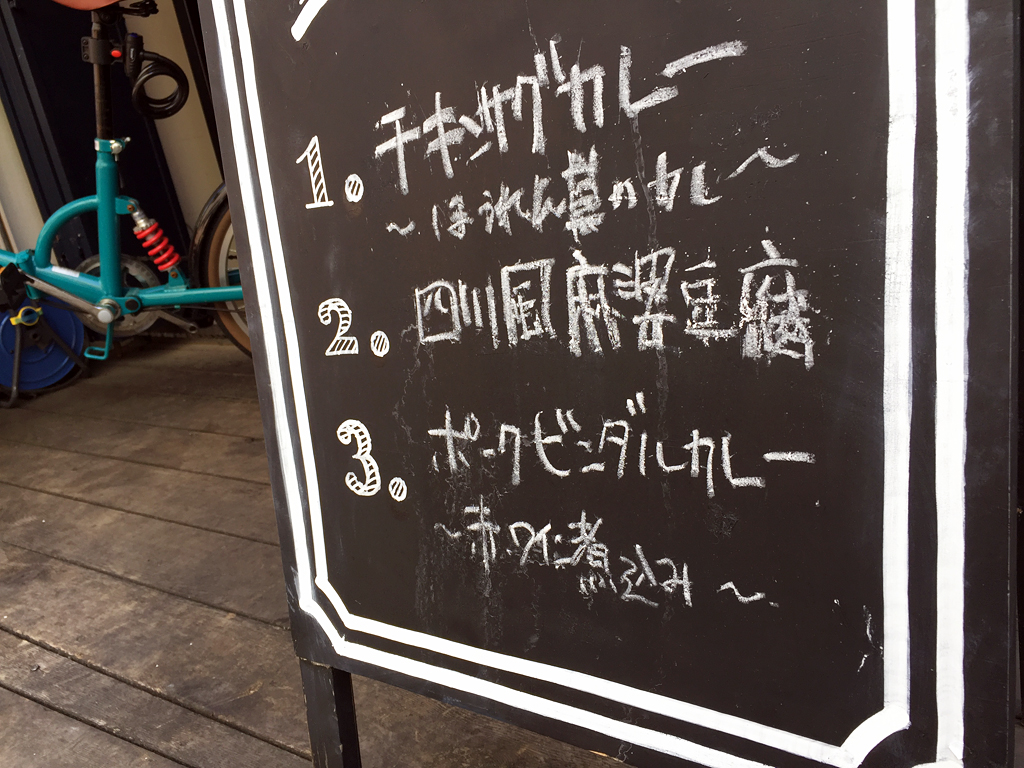 1. チキンサグカレー
~ほうれん草のカレー~
2. 四川風麻婆豆腐
3. ポークビンダルカレー
~赤ワイン煮込み~